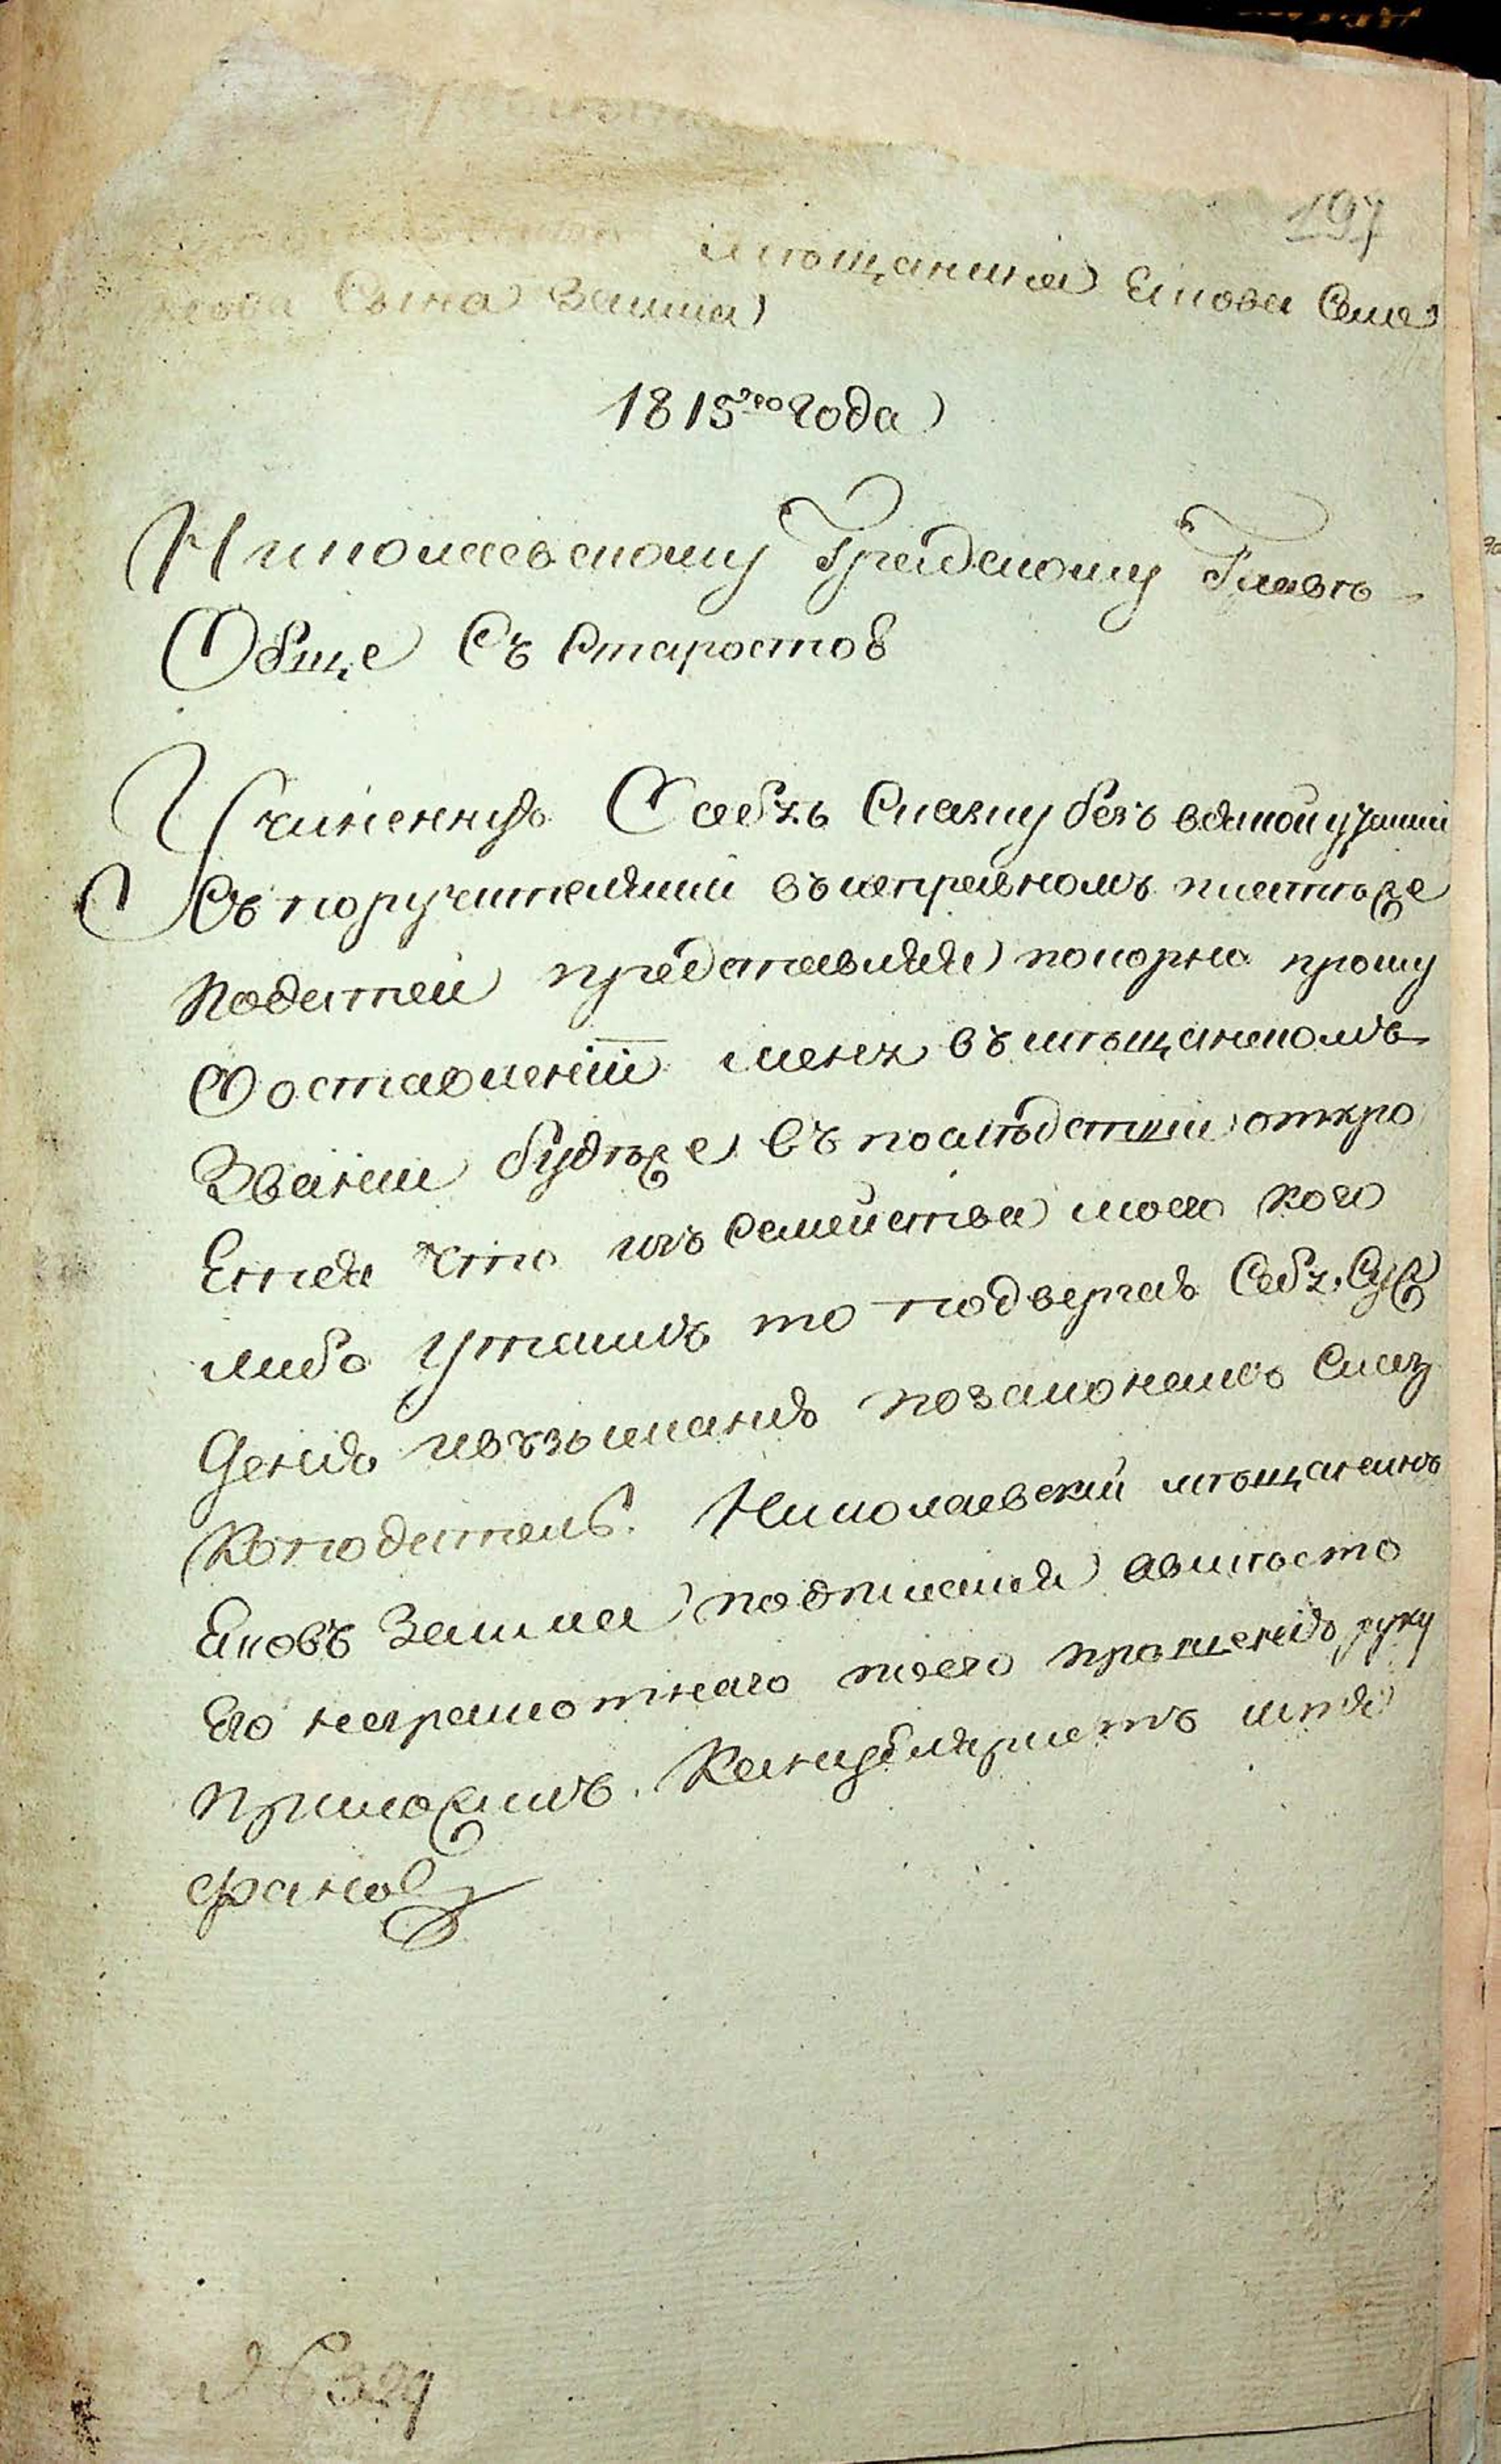 197
мѣщанина Екова Семе
нова Сына Заима
1815го года
Николаевскому Градскому Главѣ
Обще Съ Старостов
Учиненную Собѣ Сказку безъ всякой утайки
Съ поручителями въ исправномъ платеже
податей представляя покорно прошу
О оставленіи меня въ мѣщанскомъ
Званіи будѣже въ послѣдствіи откро
Етца что изъ семейства моего кого
либо утаилъ то подвергаю Себя Суж
Денію и взысканію позаконамъ Сказ
Коподатель. Николаевскій мѣщанинъ
Ековъ Заима подписался авместо
Его неграмотнаго поего прошенію руку
приложилъ. Канцеляристъ
фанов
№ 329